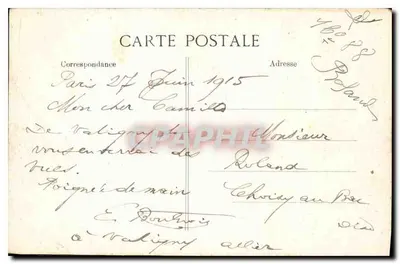 CARTE POSTALE
Correspondance
Adresse
Paris 27 Juin 1915
Mon cher Camille
De Valigny je
vous enverrai des
vues.
Poignée de main
à Valigny allier
Monsieur
Roland
Choisy au Bac
Oise